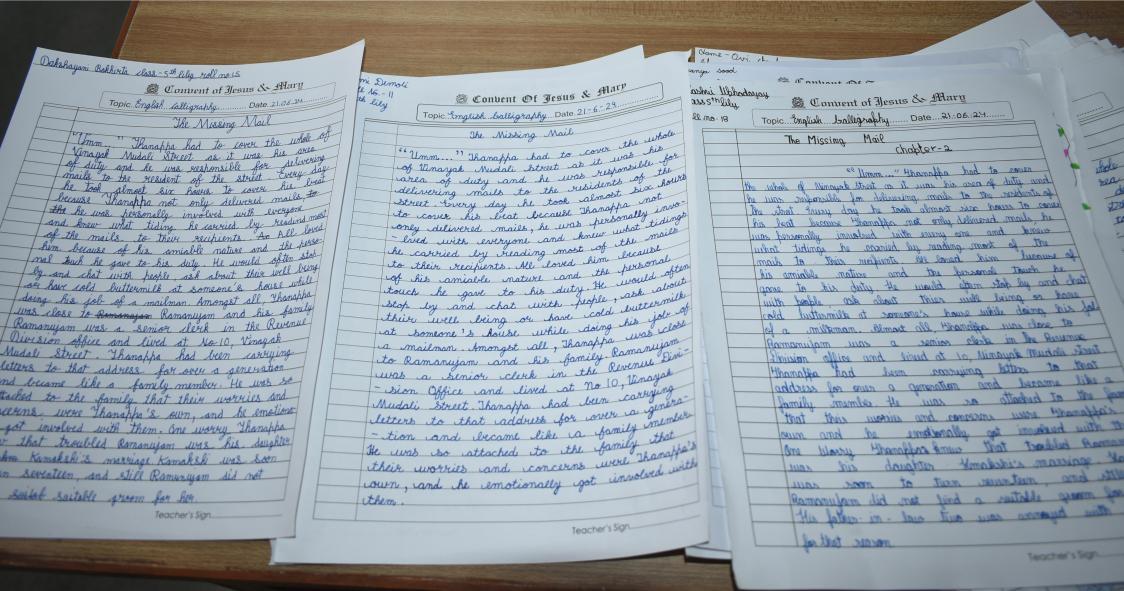 Dakshayani Rakhirta class-5th lily roll no 15
Convent of Jesus & Mary
Topic. English Calligraphy Date. 21.06.24
The Missing Mail
"Umm..." Thanappa had to cover the whole of
Vinayak Mudali Street as it was his area
of duty and he was responsible for delivering
mails to the resident of the street Every day
he took almost six hours to cover his beat
because Thanappa not only delivered mails,
the he was personally involved with everyone
and knew what tiding he carried by reading most
of the mails to their recipients. As All loved
him because of his amiable nature and the perso-
nal touch he gave to his duty He would often stop
by and chat with people ask about their well being
or have cold buttermilk at someone's house while
doing his job of a mailman. Amongst all, Thanappa
was close to Ramanujam and his family
Ramanujam was a senior clerk in the Revenue
Division office and lived at No-10, Vinayak
Mudali Street. Thanappa had been carrying
letters to that address for over a generation
and became like a family member. He was so
attached to the family that their worries and
were Thanappa's own, and he
got involved with them. One worry Thanappa
that troubled Ramanujam was his daughter
Kamakshi's marriage Kamakshi was soon
seventeen, and still Ramanujam did not
suitable groom for her.
Teacher's Sign
Demoti
No. - 11
lily
Convent Of Jesus & Mary
Topic English Calligraphy Date 21-6-24
The Missing Mail
"Umm...." Thanappa had to cover the whole
of Vinayak Mudali Street as it was his
area of duty and he was responsible for
delivering mails to the residents of the
street Every day he took almost six hours
to cover his beat because Thanappa not
only delivered mails, he was personally invo-
-lved with everyone and knew what tidings
he carried by reading most of the mails
to their recipients. All loved him because
of his amiable nature and the personal
touch he gave to his duty. He would often
stop by and chat with people, ask about
their well being or have cold buttermilk
at someone's house while doing his job of
a mailman. Amongst all, Thanappa was close
to Ramanujam and his family. Ramanujam
was a senior clerk in the Revenue Divi-
-sion Office and lived at No 10, Vinayak
Mudali Street. Thanappa had been carrying
letters to that address for over a genera-
-tion and became like a family member
He was so attached to the family that
their worries and concerns were Thanappa's
own, and he emotionally got involved with
them.
Teacher's Sign
Name - Avi
sood
Upadhyay
5th lily
no- 18
Convent of Jesus & Mary
Topic. English Calligraphy Date. 21.06.24
The Missing Mail
Chapter-2
"Umm..." Thanappa had to cover
the whole of Vinayak street as it was his area of duty and
he was responsible for delivering mails to the residents of
the that Every day he took almost six hours to cover
his bed because Thanappa not only delivered mails he
was personally involved with every one and knew
what tidings he carried by reading most of the
mails to their recipients All loved him because of
his amiable native and the personal touch he
gave to his duty He would often stop by and chat
with people ask about thier well being or have
cold buttermilk at someone's house while doing his job
of a milkman. Almost all, Thanappa was close to
Ramanujam was a senior clerk in the Revenue
Division office and lived at 10, Vinayak Mudali street
Thanappa had been carrying letters to that
address for over a generation and became like a
family member He was so attached to the
that this worries and concerns were Thanappa's
own and he emotionally got involved with
One Worry Thanappa's knew that troubled
was his daughter Kmakshi's marriage.
was soon to turn seventeen, and
Ramanujam did not find a suitable groom for
His father-in-law Two was annoyed with
for that reason
Teacher's Sign